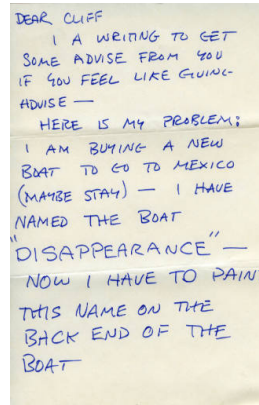 DEAR CLIFF
I A WRITING TO GET
SOME ADVISE FROM YOU
IF YOU FEEL LIKE GIVING
ADVISE —
HERE IS MY PROBLEM:
I AM BUYING A NEW
BOAT TO GO TO MEXICO
(MAYBE STAY) — I HAVE
NAMED THE BOAT
"DISAPPEARANCE" —
NOW I HAVE TO PAIN
THIS NAME ON THE
BACK END OF THE
BOAT